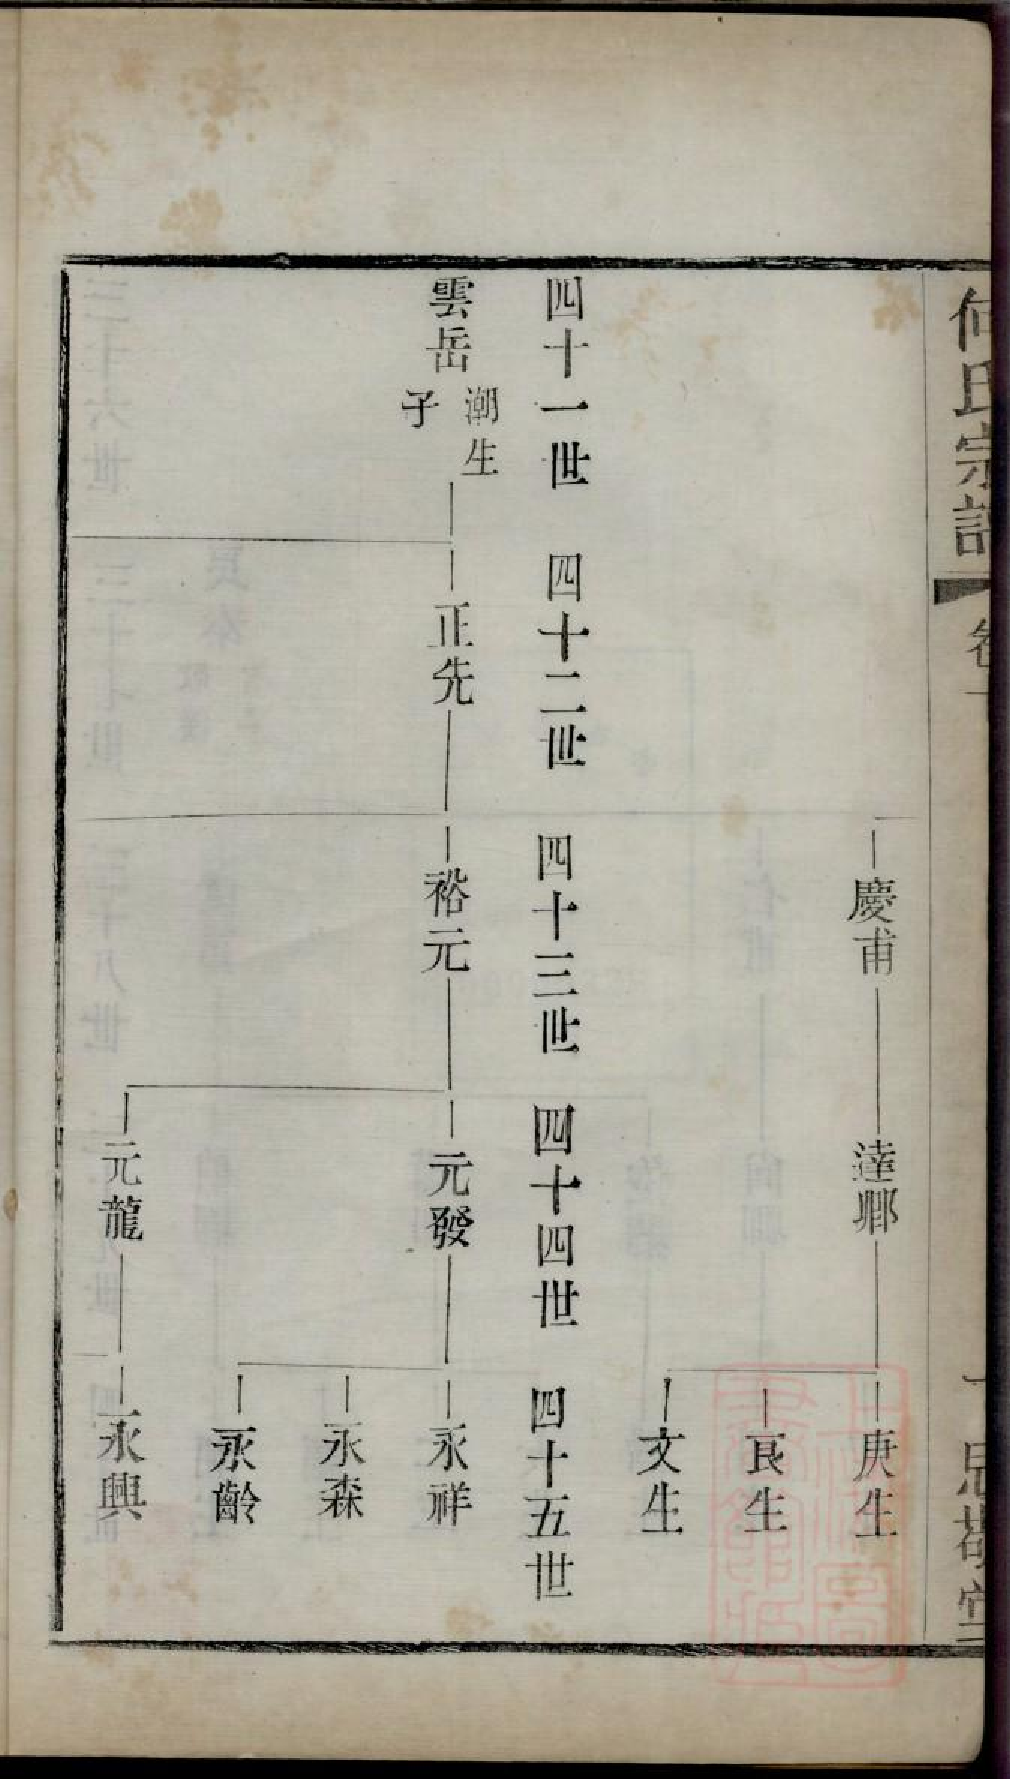 何氏宗譜
卷一
思敬堂
慶甫
達卿
庚生
良生
文生
四十一世 四十二世 四十三世 四十四世 四十五世
雲岳 潮生子
正先
裕元
元發
永祥
永森
永齡
元龍
永興